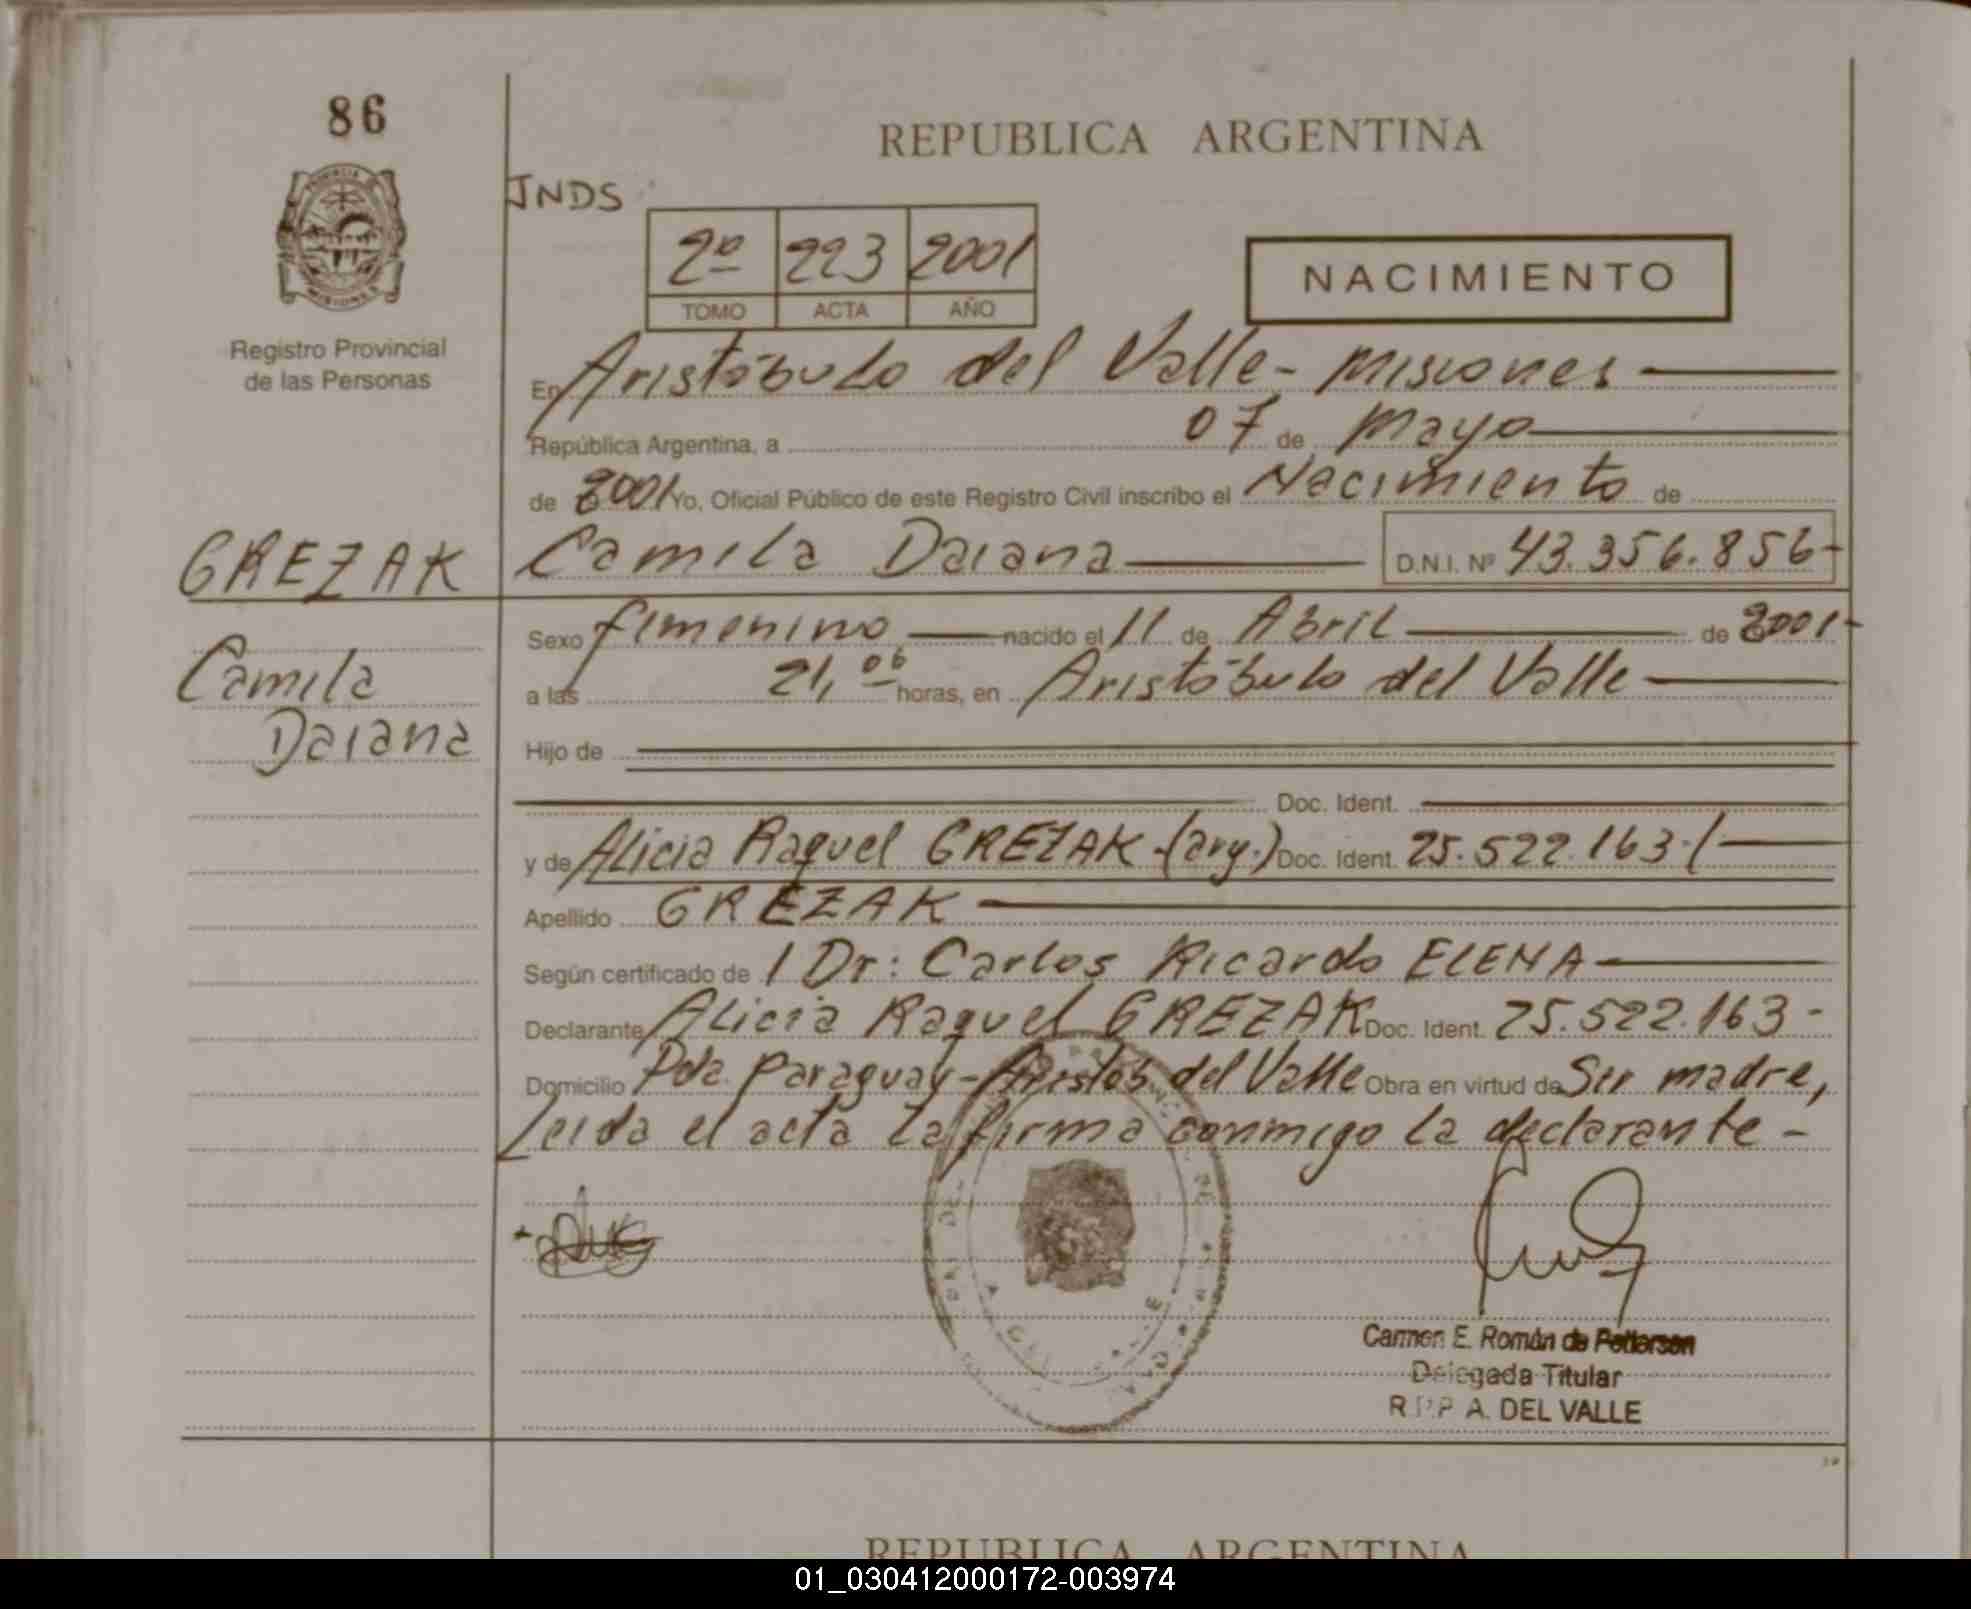 86
REPUBLICA ARGENTINA
JNDS
2º 223 2001
TOMO ACTA AÑO
NACIMIENTO
Registro Provincial
de las Personas
En Aristóbulo del Valle - Misiones
República Argentina, a 07 de Mayo
de 2001 Yo, Oficial Público de este Registro Civil inscribo el Nacimiento de
GREZAK Camila Daiana D.N.I. Nº 43.356.856-
Sexo femenino nacido el 11 de Abril de 2001-
Camila
a las 21,06 horas, en Aristóbulo del Valle
Daiana
Hijo de
Doc. Ident.
y de Alicia Raquel GREZAK-(arg.) Doc. Ident. 25.522.163./
Apellido GREZAK
Según certificado de / Dr: Carlos Ricardo ELENA
Declarante Alicia Raquel GREZAK Doc. Ident. 25.522.163-
Domicilio Pda. Paraguay-Aristób del Valle Obra en virtud de Ser madre,
Leida el acta la firma conmigo la declarante-
Carmen E. Román de
Delegada Titular
R.P.P A. DEL VALLE
REPUBLICA ARGENTINA
01_030412000172-003974